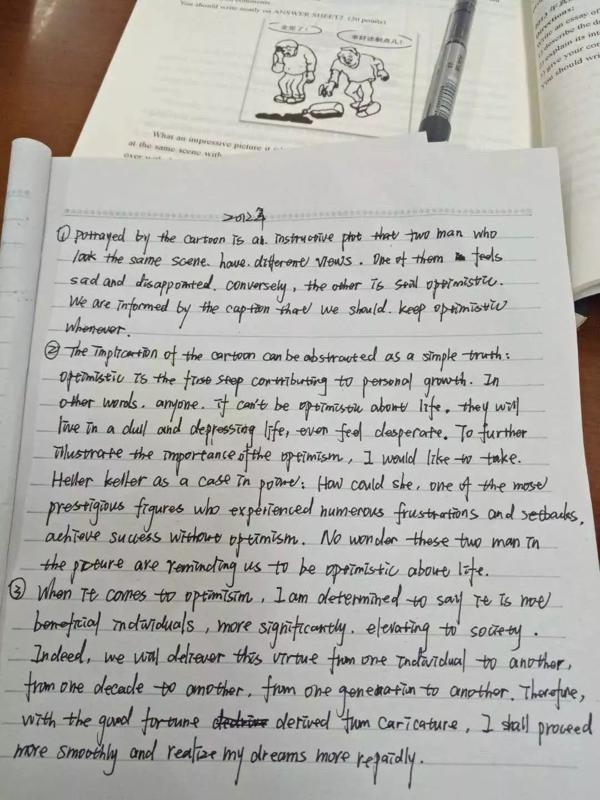 You should write neatly on ANSWER SHEET2. (20 points)
全完了!
幸好还剩点儿!
What an impressive picture it
at the same scene with
2012年
① Portrayed by the cartoon is an instructive plot that two man who
look the same scene. have different views. One of them feels
sad and disappointed. conversely, the other is still optimistic.
We are informed by the caption that we should. keep optimistic
whenever.
② The implication of the cartoon can be abstracted as a simple truth:
optimistic is the first step contributing to personal growth. In
other words. anyone. if can't be optimistic about life, they will
live in a dull and depressing life, even feel desperate. To further
illustrate the importance of the optimism, I would like to take.
Heller keller as a case in point: How could she, one of the most
prestigious figures who experienced numerous frustrations and setbacks,
achieve success without optimism. No wonder these two man in
the picture are reminding us to be optimistic about life.
③ When it comes to optimisim, I am determined to say it is not
beneficial individuals, more significantly. elevating to society.
Indeed, we will deliever this virtue from one individual to another,
from one decade to another, from one generation to another. Therefore,
with the good fortune derived from caricature, I shall proceed
more smoothly and realize my dreams more repaidly.